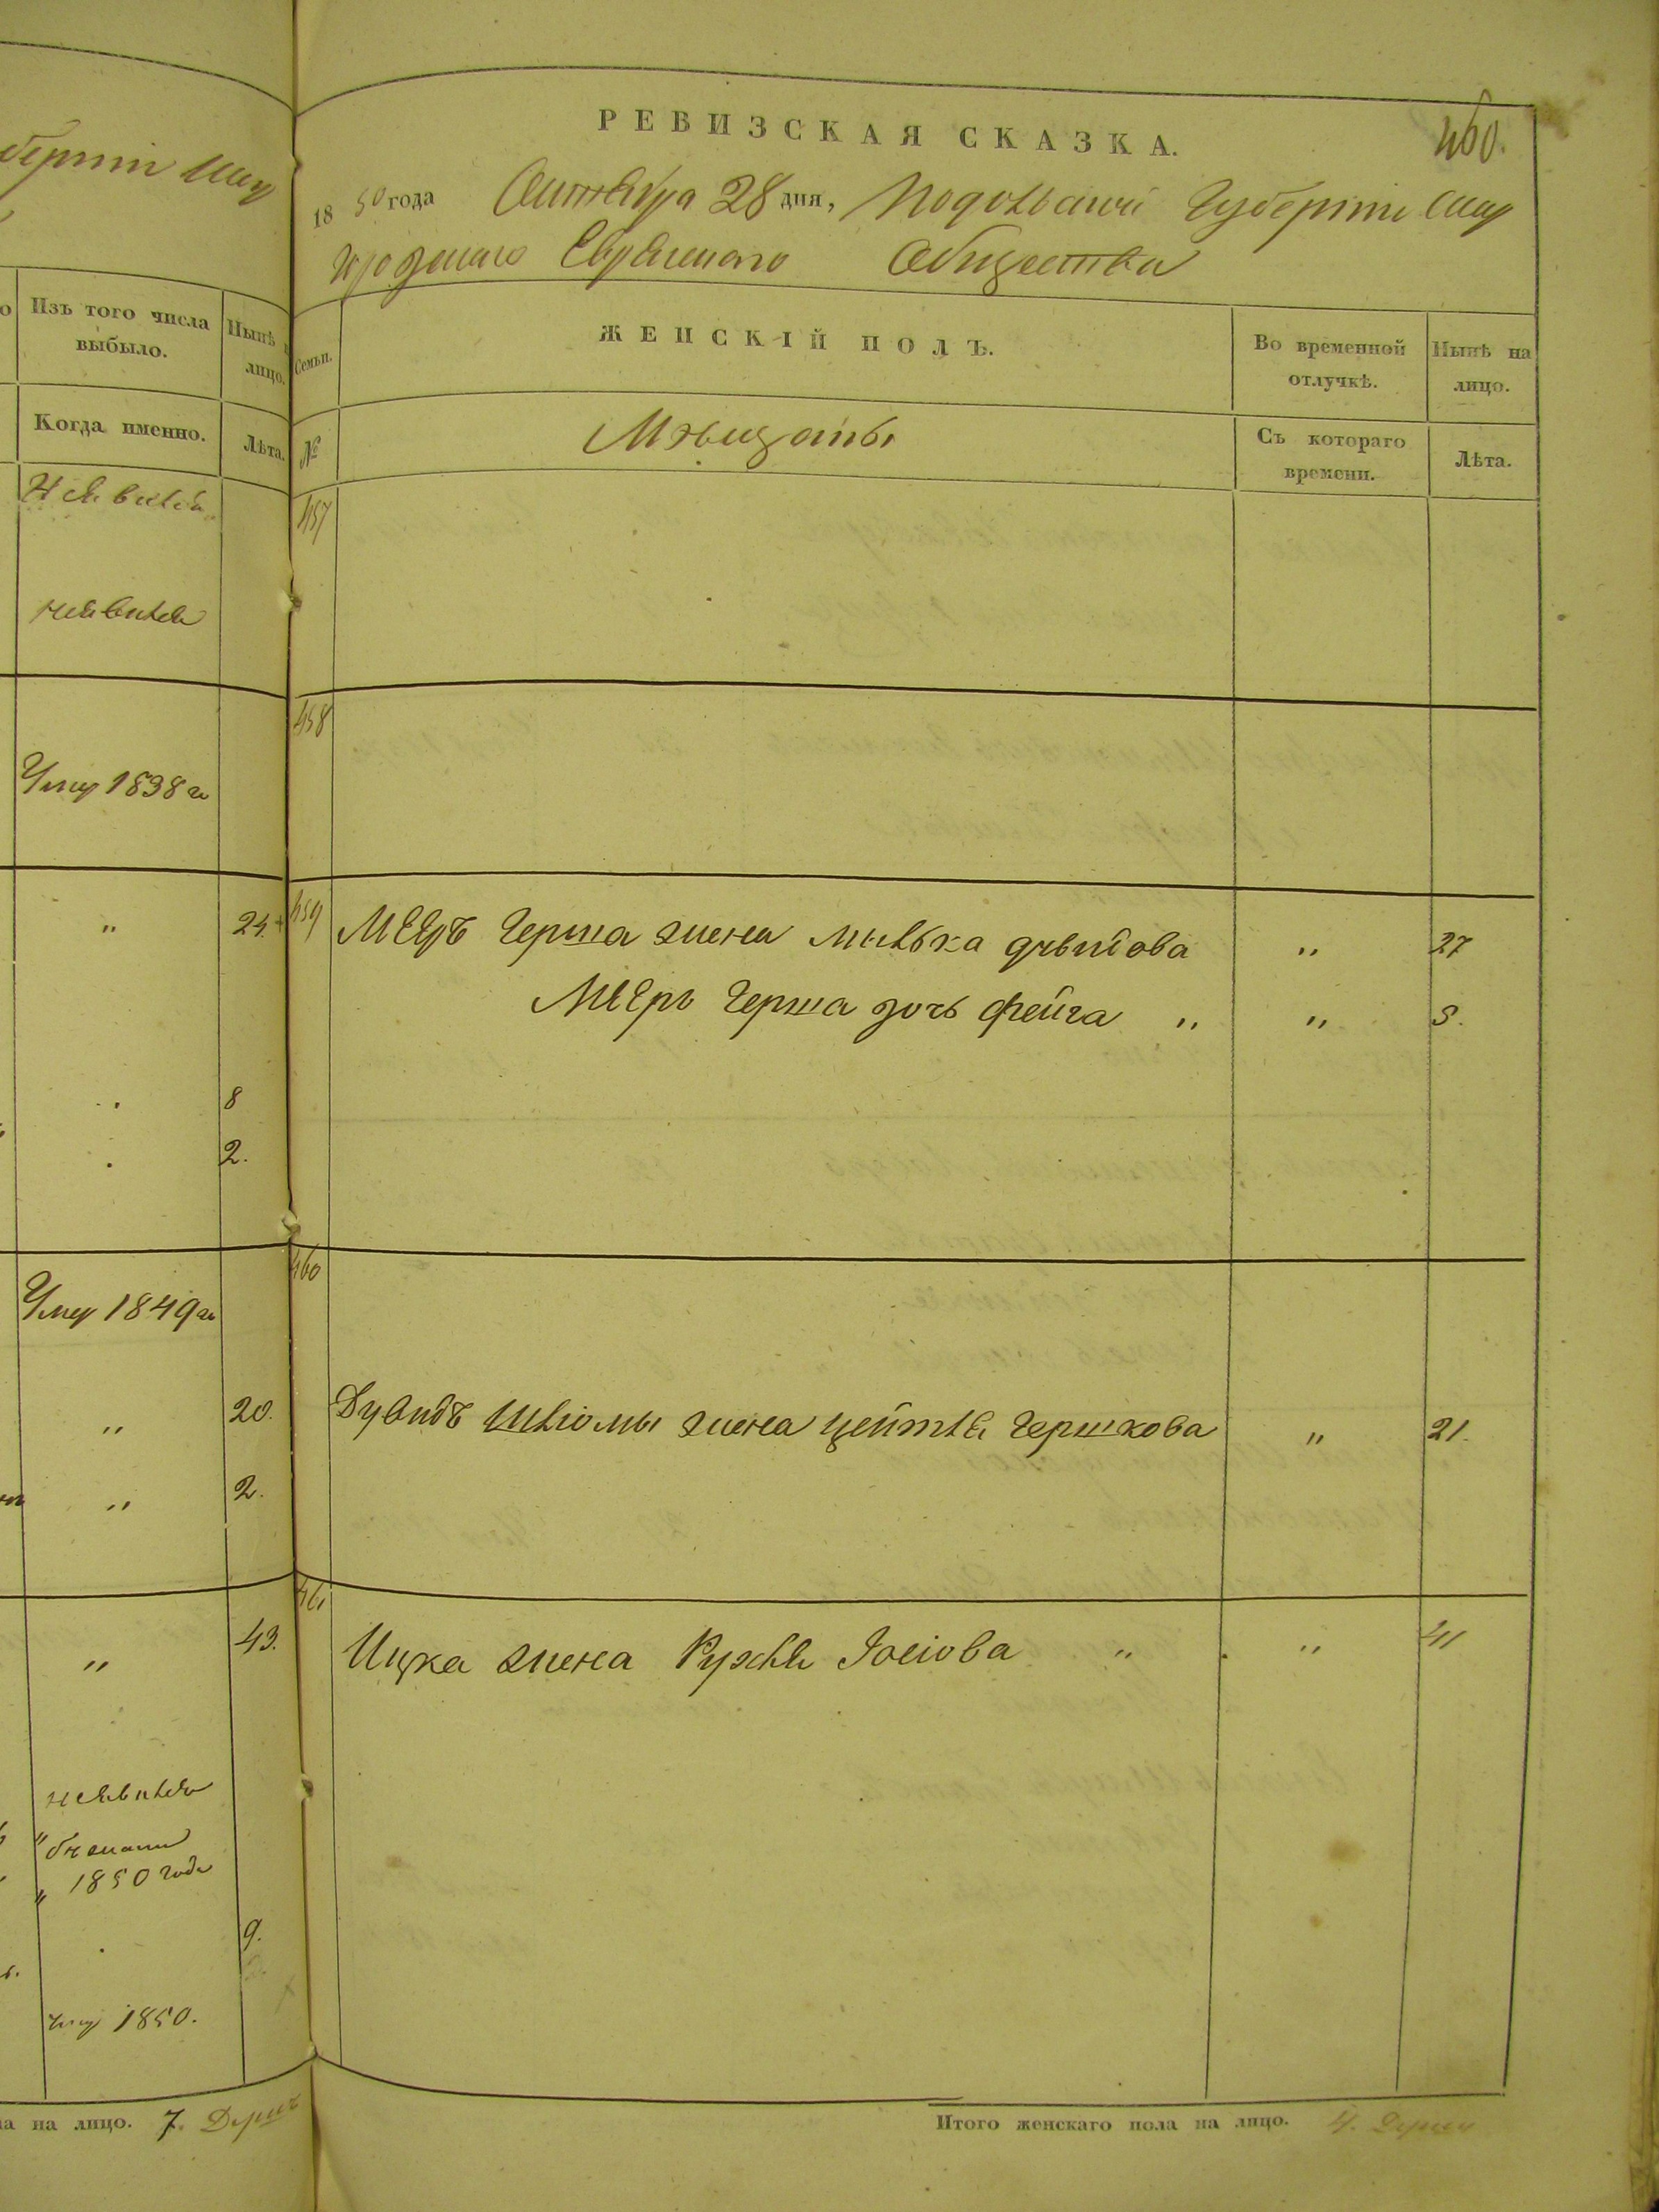 берніи Шар
Изъ того числа
выбыло.
Нынѣ
лицо.
Когда именно.
Лѣта.
неявился
неявился
Умер 1838 го
" 24
. 8
. 2.
Умер 1849 го
" 20.
" 2.
" 43.
неявился
1850 года
. 9.
умер 1850.
на лицо. 7. Душъ
РЕВИЗСКАЯ СКАЗКА.
460.
1850 года Октября 28 дня, Подольской Губерніи Шар
городскаго Еврейскаго Общества
Семьи.
ЖЕНСКІЙ ПОЛЪ.
Во временной
отлучкѣ.
Нынѣ на
лицо.
№
Мѣщаны
Съ котораго
времени.
Лѣта.
457
458
459 Мееръ Герша жена Милька Дувидова " 27
Мееръ Герша дочь Фейга " " 5.
460
Дувидъ Шлiомы жена Цейтля Гершкова " 21.
461
Ицка жена Рухля Iосiова " " 41
Итого женскаго пола на лицо. 4. Души